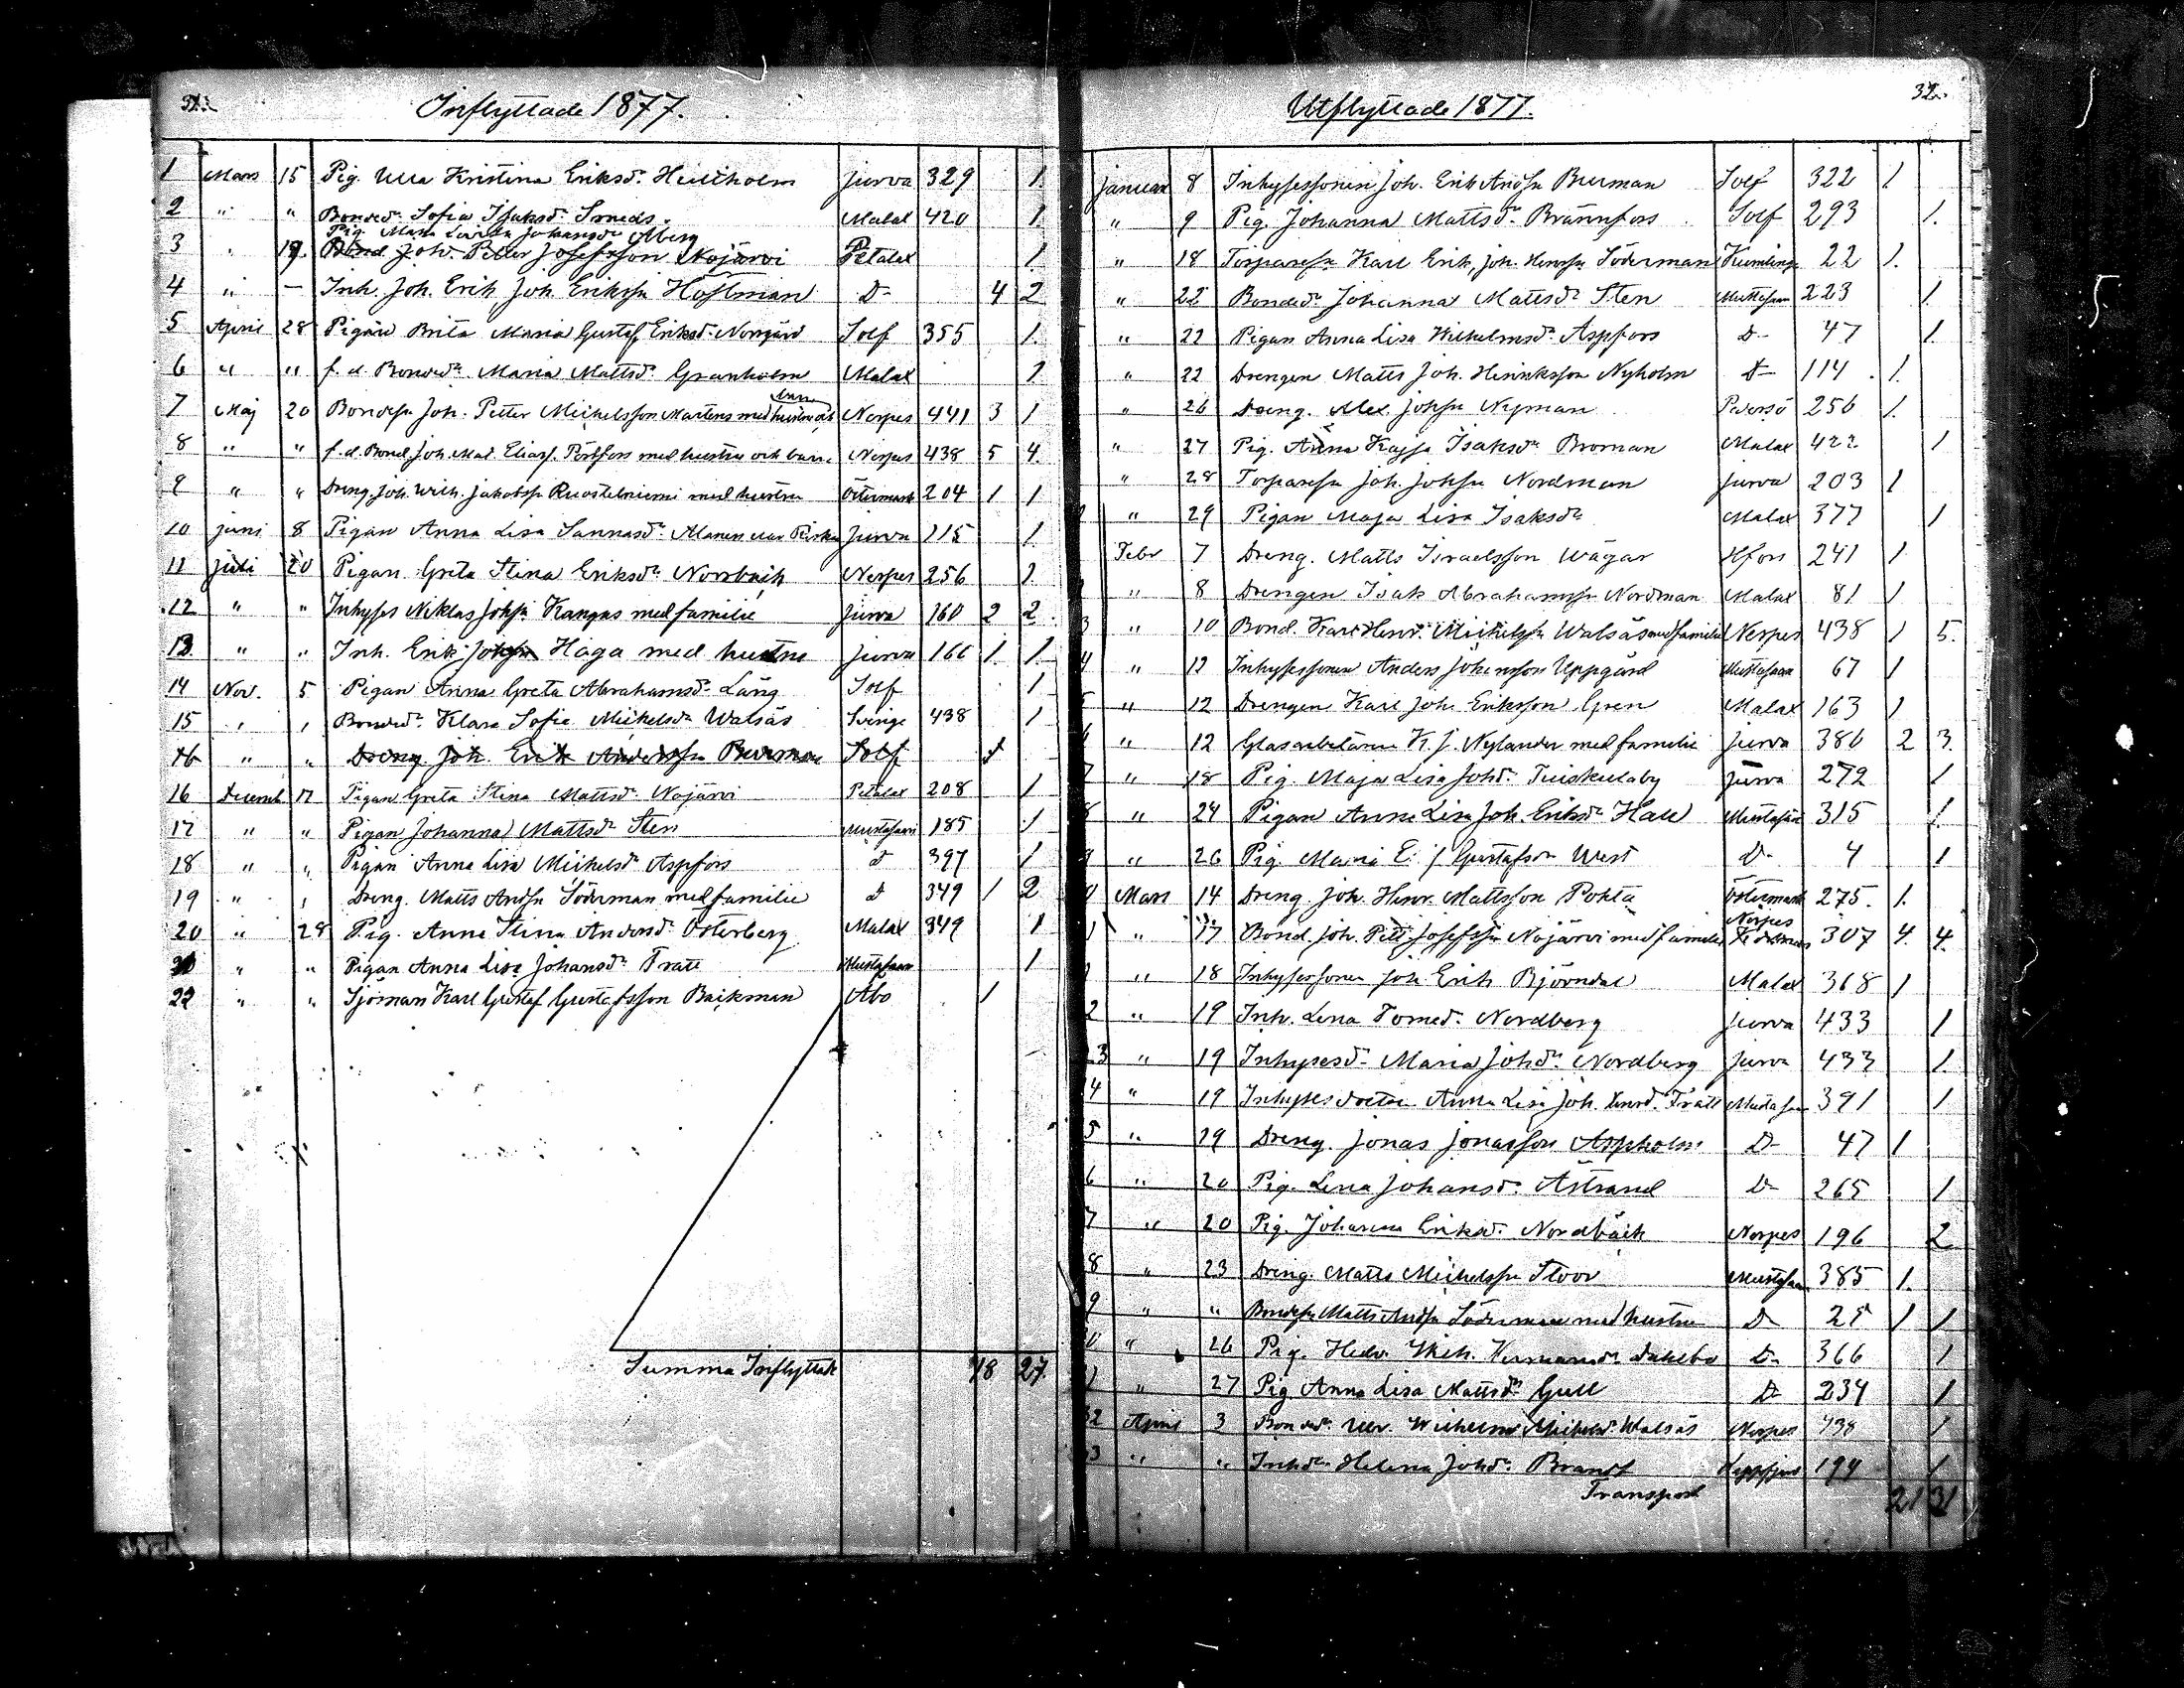 Inflyttade 1877.
1 Mars 15 Pig. Ulla Kristina Eriksdr Jurva 329 1.
2 " " Bondedr Sofia Isaksdr Smeds. Malax 420 1.
Pig. Maria Lovisa Johansdr Åberg
3 " 19. Bond. Joh. Petter Josefsson Nojärvi Petalax 1.
4 " – Inh. Joh. Erik Joh. Eriksson Hoffman D– 4 2
5 April 28 Pigan Brita Maria Gustaf Eriksdr Norrgård Solf 355 1.
6 " " f. d. Bondedr Maria Mattsdr Granholm Malax 1
7 Maj 20 Bondesn Joh. Petter Michelsson Martens med hustru och barn Nerpes 441 3 1
8 " " f. d. Bond. Joh. Mat. Eliass. Pörtfors med hustru och barn Nerpes 438 5 4.
9 " " Dreng. Joh. Wilh. Jakobssn med hustru Östermark 204 1 1
10 Juni 8 Pigan Anna Lisa Sannasdr Jurva 215 1.
11 Juli 20 Pigan Greta Stina Eriksdr Norrback Nerpes 256 1
12 " " Inhyses Niklas Johssn Kangas med familie Jurva 160 2 2.
13 " " Inh. Erik Johssn Haga med hustru Jurva 166 1. 1.
14 Nov. 5 Pigan Anna Greta Abrahamsdr Lång Solf 1
15 " " Bondedr Klara Sofie Michelsdr Walsäs Sverige 438 1
16 " " Dreng Joh. Erik Anderssn Burman Solf 1
16 Decemb 17 Pigan Greta Stina Mattsdr Nojärvi Petalax 208 1
17 " " Pigan Johanna Mattsdr Sten Mustasaari 185 1
18 " " Pigan Anna Lisa Michelsdr Aspfors d 397 1
19 " " Dreng. Matts Andsn Söderman med familie d 349 1 2
20 " 28 Pig. Anna Stina Andersdr Österberg Malax 349 1
21 " " Pigan Anna Lisa Johansdr Trall Mustasaari 1
22 " " Sjöman Karl Gustaf Gustafsson Backman Åbo 1
Summa Inflyttade 18 27.
Utflyttade 1877.
32.
Januari 8 Inhysessonen Joh. Erik Andsn Burman Solf 322 1
" 9 Pig. Johanna Mattsdr Brännfors Solf 293 1.
" 18 Torparesn Karl Erik Joh. Henrssn Söderman Kvimlinge 22 1.
" 22 Bondedr Johanna Mattsdr Sten Mustasaari 223 1
" 22 Pigan Anna Lisa Wilhelmsdr Aspfors D– 47 1.
" 22 Drengen Matts Joh. Henriksson Nyholm D– 114 1.
" 26 Dreng. Alex. Johssn Nyman Pedersö 256 1.
" 27 Pig. Anna Kajsa Isaksdr Broman Malax 422 1
" 28 Torparesn Joh. Johssn Nordman Jurva 203 1
" 29 Pigan Maja Lisa Isaksdr Malax 377 1
Febr 7 Dreng. Matts Israelsson Wägar Hfors 241 1
" 8 Drengen Isak Abrahamssn Nordman Malax 81 1
3 " 10 Bond. Karl Henr. Michelssn Walsäs med familie Nerpes 438 1 5.
4 " 12 Inhysessonen Anders Johansson Uppgård Mustasaari 67 1
5 " 12 Drengen Karl Joh. Eriksson Gren Malax 163 1
6 " 12 Glasarbetaren K. J. Nylander med familie Jurva 386 2 3.
7 " 18 Pig. Maja Lisa Johdr Tuiskulaby Jurva 272 1
8 " 24 Pigan Anna Lisa Joh. Eriksdr Hall Mustasaari 315 1.
9 " 26 Pig. Maria E. Gustafson West D– 4 1
0 Mars 14 Dreng. Joh. Henr. Mattsson Pohta Östermark 275. 1.
Nerpes
1 " 17 Bond. Joh. Pett. Josefssn Nojärvi med familie 307 4. 4.
" 18 Inhysessonen Joh Erik Björndal Malax 368 1
2 " 19 Inh. Lena Tomasdr Nordberg Jurva 433 1
23 " 19 Inhysesdr Maria Johdr Nordberg Jurva 433 1.
4 " 19 Inhyses dottern Anna Lisa Joh. Trall Mustasaari 391 1
5 " 19 Dreng. Jonas Jonasson Aspholm D– 47 1
6 " 20 Pig. Lena Johansdr Åstrand D– 265 1
7 " 20 Pig. Johanna Eriksdr Nordbäck Nerpes 196 2
8 " 23 Dreng. Matts Michelssn Stoor Mustasaari 385 1.
9 " " Bondesn Matts Andsn Söderman med hustru D– 25 1 1
0 " 26 Pig. Hedv. Wilh. Hermansdr Dahlbo D– 366 1
1 " 27 Pig Anna Lisa Mattsdr Gull D– 234 1
32 April 3 Bondedr Ulr. Wilhelmina Michelsdr Walsäs Nerpes 438 1
33 " " Inhdr Helena Johdr Brandt 194 1
Transport 21 31